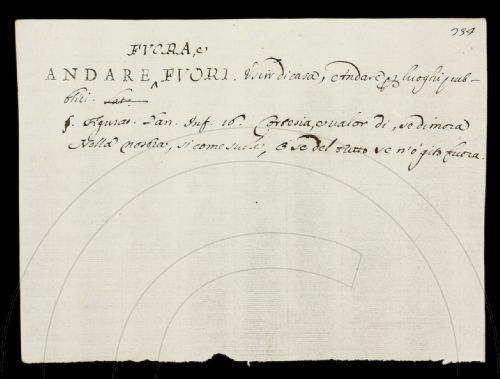 284
FUORA, e
ANDARE FUORI. Uscir di casa, e Andare pe' luoghi pub-
blici.
§. Figurat. Dan. Inf. 16. Cortesia, e valor di, se dimora
Nella nostra, si come suole, O se del tutto se n'è gito fuora.